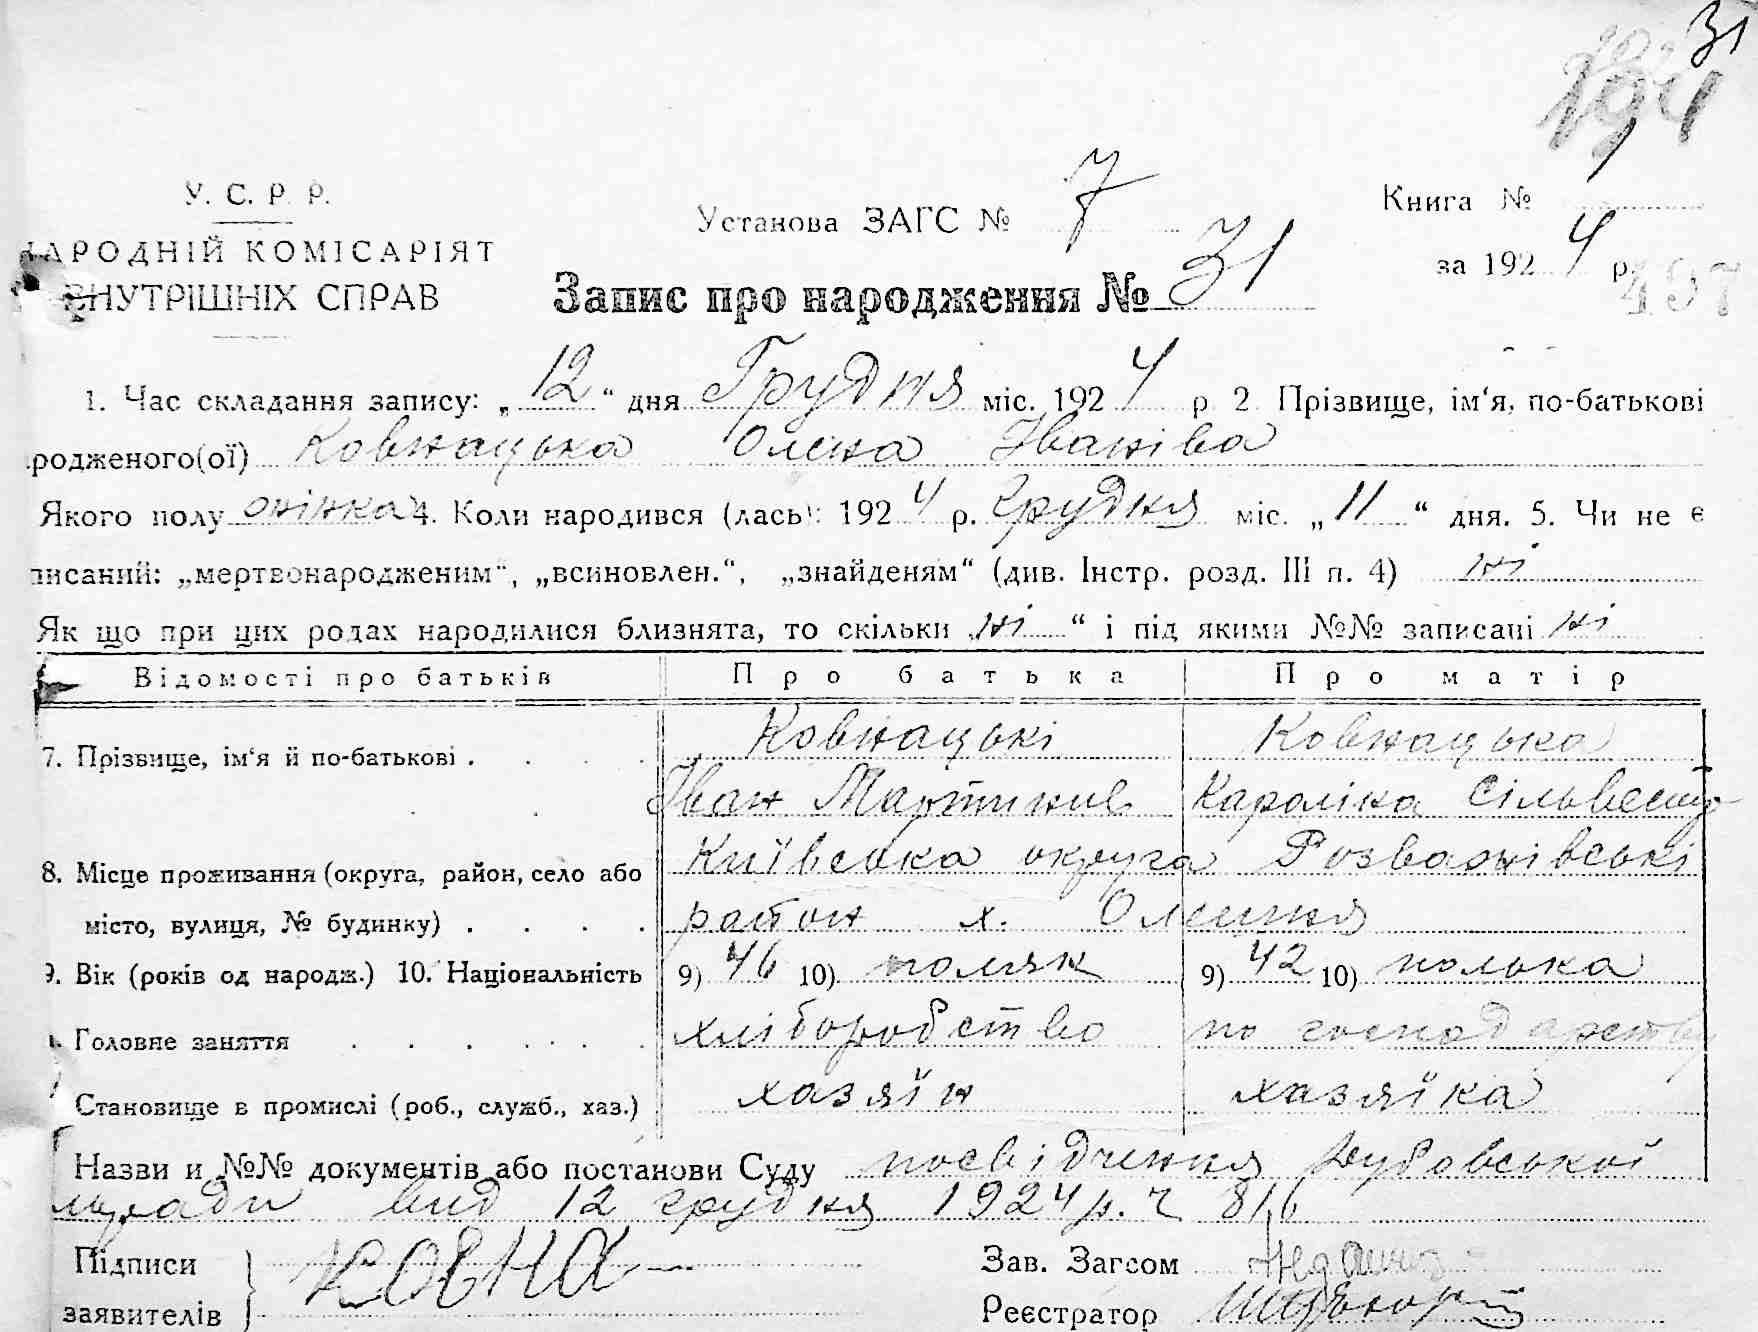 31
У. С. Р. Р.
НАРОДНІЙ КОМІСАРІЯТ
ВНУТРІШНІХ СПРАВ
Установа ЗАГС № 7
Книга №
за 1924 р
497
Запис про народження № 31
1. Час складання запису: „12“ дня Грудня міс. 1924 р 2 Прізвище, ім‘я, по-батькові
родженого(ої) Ковнацька Олена Іваніва
Якого полу жінка 4. Коли народився (лась): 1924 р. грудня міс. „11“ дня. 5. Чи не є
писаний: „мертвонародженим“, „всиновлен.“, „знайденям“ (див. Інстр. розд. III п. 4) ні
Як що при цих родах народилися близнята, то скільки „ні“ і під якими №№ записані ні
Відомості про батьків Про батька Про матір
7. Прізвище, ім‘я й по-батькові . Ковнацькі Ковнацька
Іван Мартинив Кароліна Сільвестр
8. Місце проживання (округа, район, село або Київська округа Розважівські
місто, вулиця, № будинку) . . . . район х. Олишня
9. Вік (років од народж.) 10. Національність 9) 46 10) поляк 9) 42 10) полька
Головне заняття . . . . . . . хліборобство по господарству
Становище в промислі (роб., служб., хаз.) хазяїн хазяїка
Назви и №№ документів або постанови Суду посвідчення
ради вид 12 грудня 1924 р. ч 816
Підписи Ковна Зав. Загсом
заявителів Реєстратор